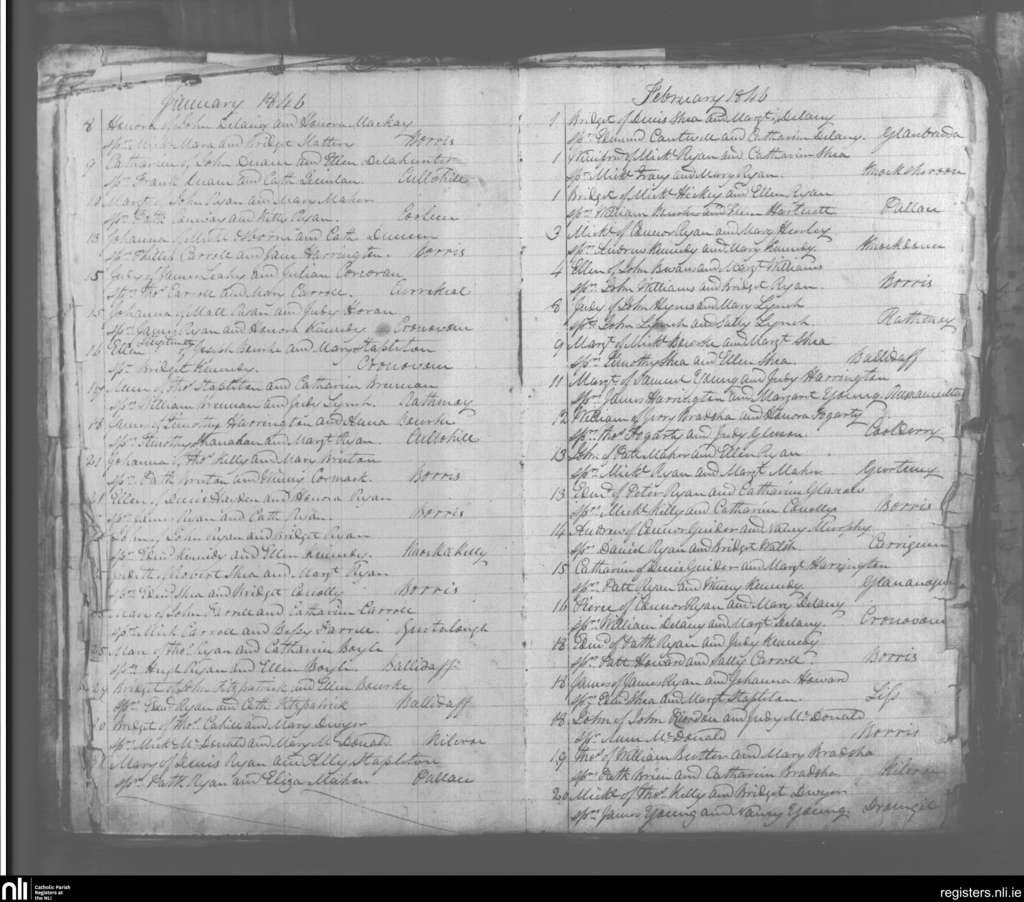 January 1846
8 Honora of John Delany and Honora Mackay
Sprs Mich Mara and Bridget Slattery Borris
9 Catharine of John Duane and Ellen Delahunty
Spr Frank Duane and Cath Quinlan. Cullohill
Margt of John Ryan and Mary Maher
Spr Path and Kitty Ryan.
13 Johanna of and Cath
Spr Philip Carroll and Jane Harrington. Borris
15 Judy of James Leahy and Julian Corcoran
Sprs Thos Carroll and Mary Carroll.
15 Johanna of Matt and Judy Horan
Sprs James Ryan and Honora Kennedy Cronovone
16 Ellen of Joseph Bourke and Mary Stapleton
Spr Bridget Kennedy. Cronovone
of Thos Stapleton and Catharine Brennan
Spr William Brennan and Judy Lynch. Rathmoy
18 of Timothy Harrington and Anna Bourke
Sprs Timothy Shanahan and Margt Ryan. Cullohill
21 Johanna of Thos Kelly and Mary
Spr Path and Cormack. Borris
21 Ellen of Denis and Honora Ryan
Spr James Ryan and Cath Ryan. Borris
of John Ryan and Bridget Ryan
Spr Edmd Kennedy and Ellen Kennedy. Knockakelly
Judith of Robert Shea and Margt Ryan
Sprs Edmd Shea and Bridget Conolly Borris
Mary of John Farrell and Catharine Carroll
Sprs Mick Carroll and Betsy Farrell. Gurtalough
25 Mary of Thos Ryan and Catharine Boyle
Sprs Hugh Ryan and Ellen Boyle. Ballidaff
29 Bridget of John Fitzpatrick and Ellen Bourke
Sprs Edmd Ryan and Cath Fitzpatrick Ballidaff
Bridget of Thos Cahill and Mary Dwyer
Sprs Mick McDonald and Mary McDonald
31 Mary of Denis Ryan and Stapleton
Sprs Path Ryan and Eliza Maher Pallace
February 1846
1 Bridget of Denis Shea and Margt Delany
Sprs Edmund Cantwell and Catharine Delany. Glanbreda
1 Winifred of Mickl Ryan and Catharine Shea
Sprs Mickl and Mary Ryan.
1 Bridget of Mickl Hickey and Ellen Ryan
Sprs William Bourke and Hartnett Pallace
3 Mickl of Connor Ryan and Mary Hurley
Sprs Andrew Kennedy and Mary Kennedy.
4 Ellen of John and Margt Williams
Sprs John Williams and Bridget Ryan. Borris
8 Judy of John and Mary Lynch
Sprs John Lynch and Sally Lynch Rathmoy
9 Margt of Mickl and Margt Shea
Sprs Timothy Shea and Ellen Shea. Ballidaff
11 Margt of Samuel Young and Judy Harrington
Sprs James Harrington and Margaret Young.
12 William of Bradsha and Honora Fogarty
Sprs Thos Fogarty and Judy Gleeson. Coolderry
13 John of Path Maher and Ellen Ryan
Sprs Mickl Ryan and Margt Maher Gurteeny
13 Edmd of Peter Ryan and Catharine
Sprs Mickl Kelly and Catharine Conolly Borris
14 Andrew of Connor Guider and Nancy Murphy
Sprs Daniel Ryan and Bridget Walsh. Carrigeen
15 Catharine of Denis Guider and Margt Harrington
Sprs Path Ryan and Kennedy
16 Pierce of Connor Ryan and Mary Delany
Sprs William Delany and Margt Delany. Cronovone
18 Edmd of Path Ryan and Judy Kennedy
Sprs Path Howard and Sally Carroll. Borris
18 James of James Ryan and Johanna Howard
Sprs Edmd Shea and Margt Stapleton. Liss
18 John of John Riordon and Judy McDonald
Spr McDonald Borris
19 Thos of William Britten and Mary Bradsha
Sprs Path Brien and Catharine Bradsha.
20 Mickl of Thos Kelly and Bridget Dwyer
Sprs James Young and Nancy Young.
nli Catholic Parish Registers at the NLI
registers.nli.ie